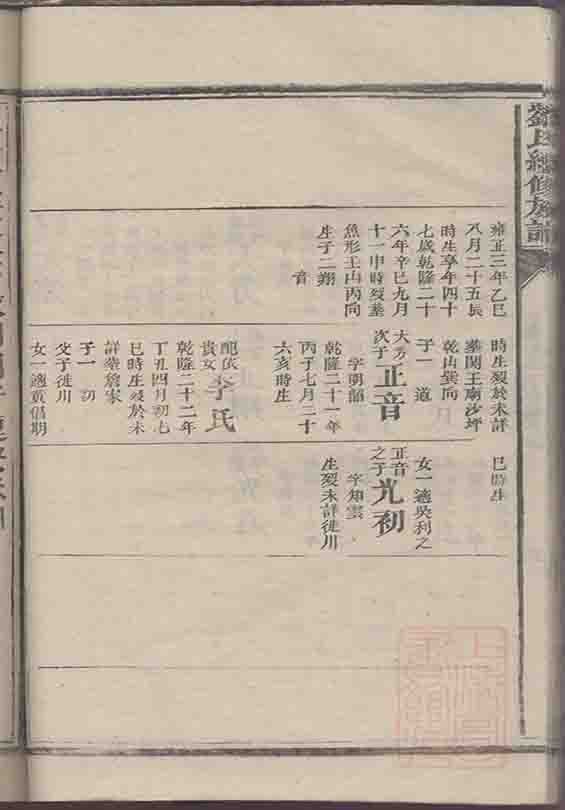 劉氏續修族譜
雍正三年乙巳
八月二十五辰
時生享年四十
七歲乾隆二十
六年辛巳九月
十一申時歿葬
魚形壬山丙向
生子二翔
音
時生歿於未詳
葬関王廟沙坪
乾山巽向
子一 道
大方
次子
正音
字朗韶
乾隆二十一年
丙子七月三十
六亥時生
配依
貴女
李氏
乾隆二十二年
丁丑四月初七
巳時生歿於未
詳葬詹家
子一 初
父子徙川
女一適黃倡期
巳時生
女一適吳利之
正音
之子
光初
字知雲
生歿未詳徙川